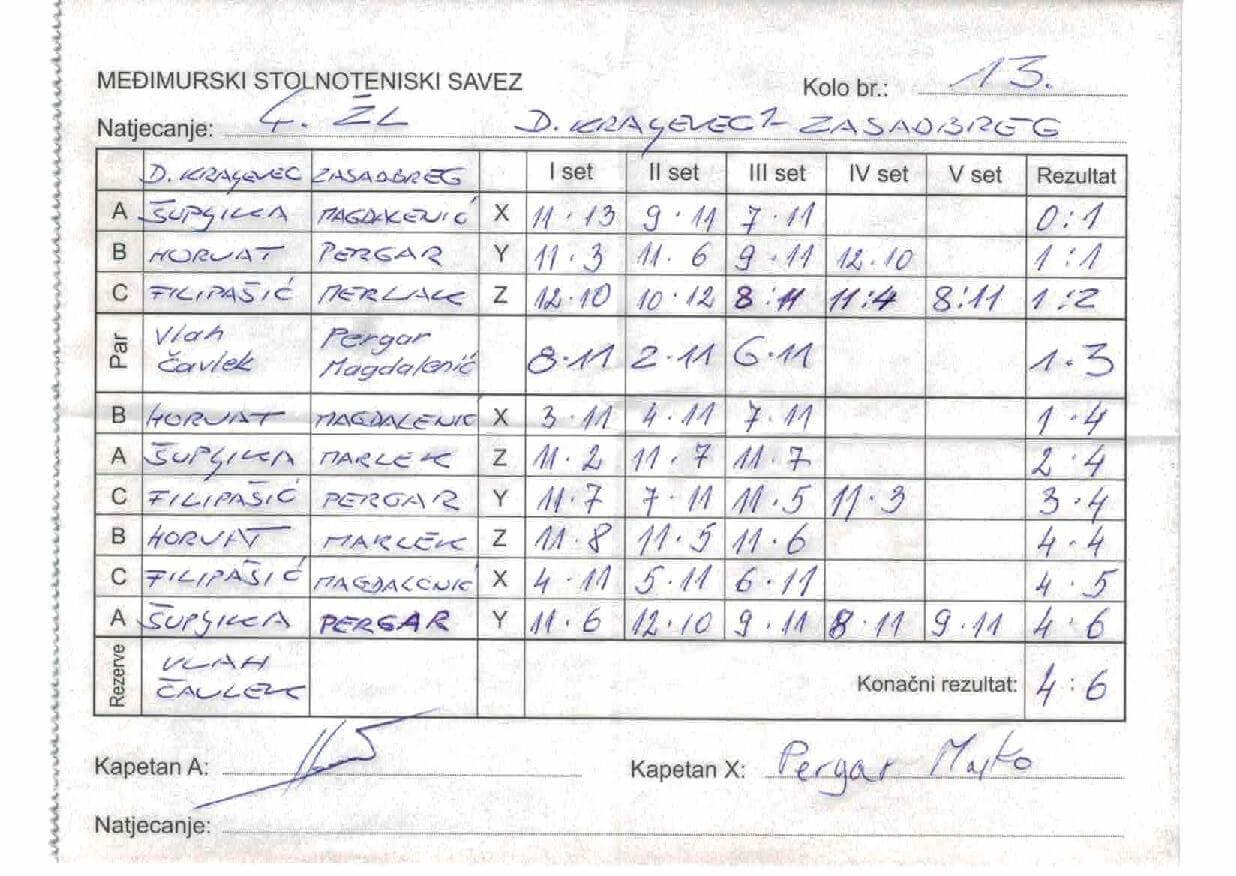 MEĐIMURSKI STOLNOTENISKI SAVEZ
Kolo br.: 13.
Natjecanje: 4. ŽL D. KRALJEVEC 2 - ZASADBREG
D. KRALJEVEC ZASADBREG I set II set III set IV set V set Rezultat
A ŠUPLJIKA MAGDALENIĆ X 11·13 9·11 7·11 0:1
B HORVAT PERGAR Y 11·3 11·6 9·11 12·10 1:1
C FILIPAŠIĆ MERLAK Z 12·10 10·12 8:11 11:4 8:11 1:2
Par Vlah Pergar
Čavlek Magdalenić 8·11 2·11 6·11 1·3
B HORVAT MAGDALENIĆ X 3·11 4·11 7·11 1·4
A ŠUPLJIKA MARLEK Z 11·2 11·7 11·7 2·4
C FILIPAŠIĆ PERGAR Y 11·7 7·11 11·5 11·3 3·4
B HORVAT MARLEK Z 11·8 11·5 11·6 4·4
C FILIPAŠIĆ MAGDALENIĆ X 4·11 5·11 6·11 4·5
A ŠUPLJIKA PERGAR Y 11·6 12·10 9·11 8·11 9·11 4·6
Rezerve VLAH
ČAVLEK Konačni rezultat: 4:6
Kapetan A: Kapetan X: Pergar Majko
Natjecanje: